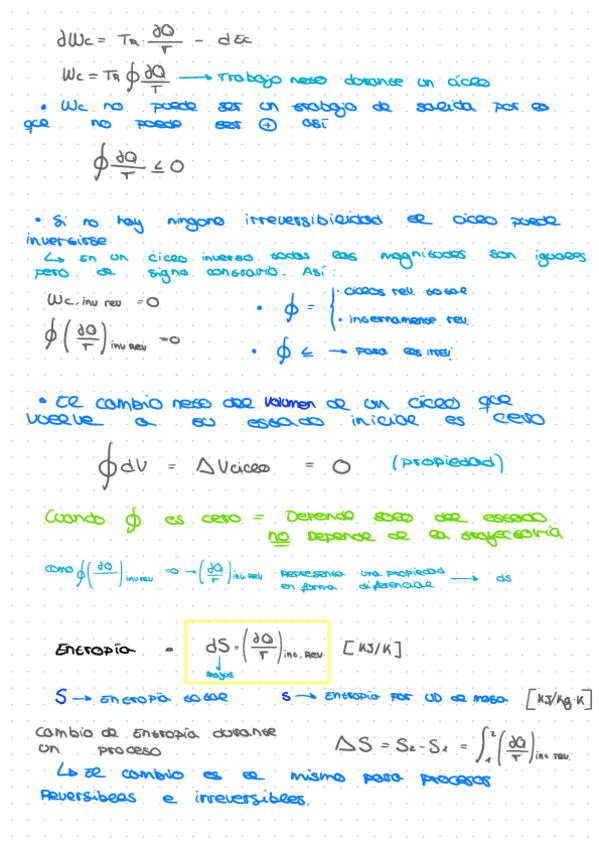 ∂Wc = TR · ∂Q/T - dEc
Wc = TR ∮ ∂Q/T → Trabajo neto durante un ciclo
• Wc no puede ser un trabajo de salida por lo
que no puede ser ⊕ así
∮ ∂Q/T ≤ 0
• Si no hay ninguna irreversibilidad el ciclo puede
invertirse.
↳ En un ciclo inverso todas las magnitudes son iguales
pero de signo contrario. Así:
Wc, inv rev = 0
∮ (∂Q/T) inv rev = 0
• ∮ = { · ciclos rev. total
· internamente rev.
• ∮ ≤ → para los irrev.
• El cambio neto del volumen de un ciclo que
vuelve a su estado inicial es cero
∮ dV = ΔVciclo = 0 (propiedad)
Cuando ∮ es cero = Depende solo del estado
no depende de la trayectoria
como ∮ (∂Q/T) inv rev = 0 → (∂Q/T) inv rev Representa una propiedad
en forma diferencial → ds
Entropía = dS = (∂Q/T) int. rev. [KJ/K]
mayus
S → Entropía total s → Entropía por UD de masa [KJ/Kg·K]
Cambio de Entropía durante
un proceso
ΔS = S2 - S1 = ∫₁² (∂Q/T) int rev.
↳ El cambio es el mismo para procesos
Reversibles e irreversibles.